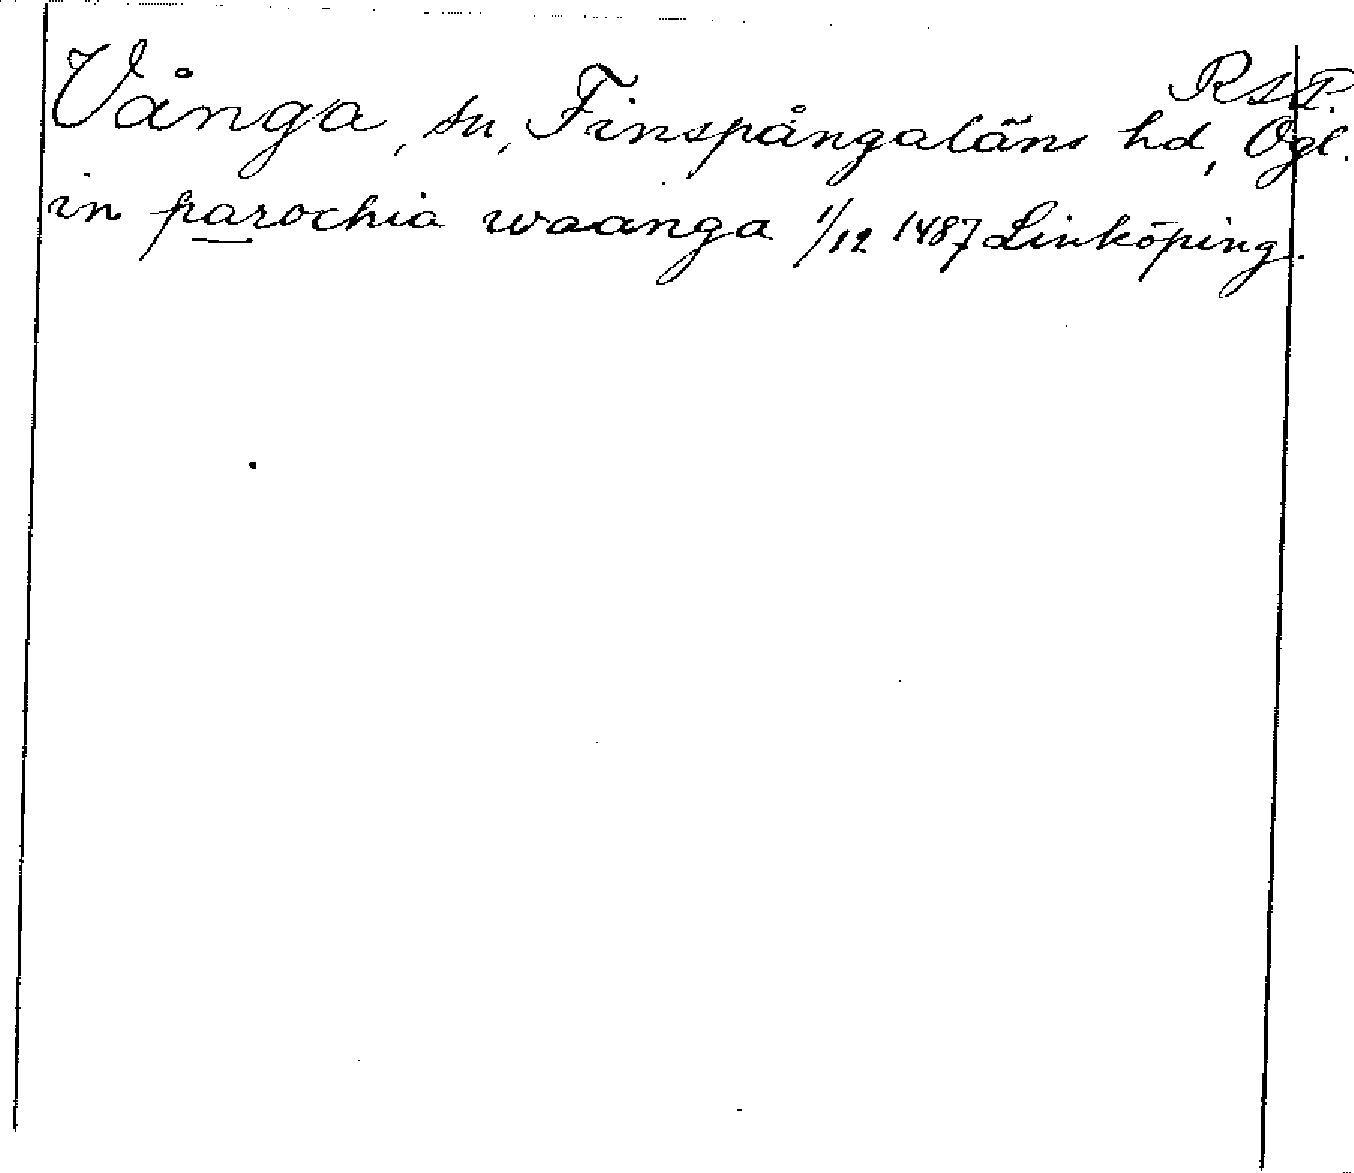 R.A.P.
Vånga, sn, Finspångaläns hd, Ögl.
in parochia waanga 1/12 1487 Linköping.